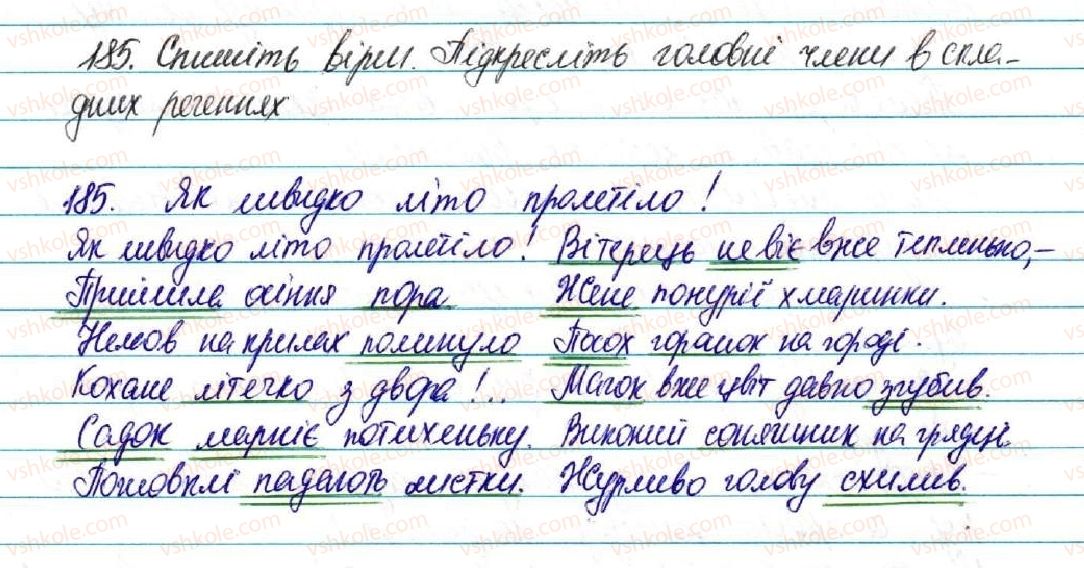 185. Спишіть вірш. Підкресліть головні члени в скла-
дних реченнях
185. Як швидко літо пролетіло!
Як швидко літо пролетіло!
Прийшла осіння пора
Немов на крилах полинуло
Кохане літечко з двора!...
Садок марніє потихеньку.
Пожовклі падають листки.
Вітерець не віє вже тепленько,–
Жене понурії хмаринки.
Посох горошок на городі.
Мачок вже цвіт давно згубив.
Високий соняшник на грядці
Журливо голову схилив.
vshkole.com